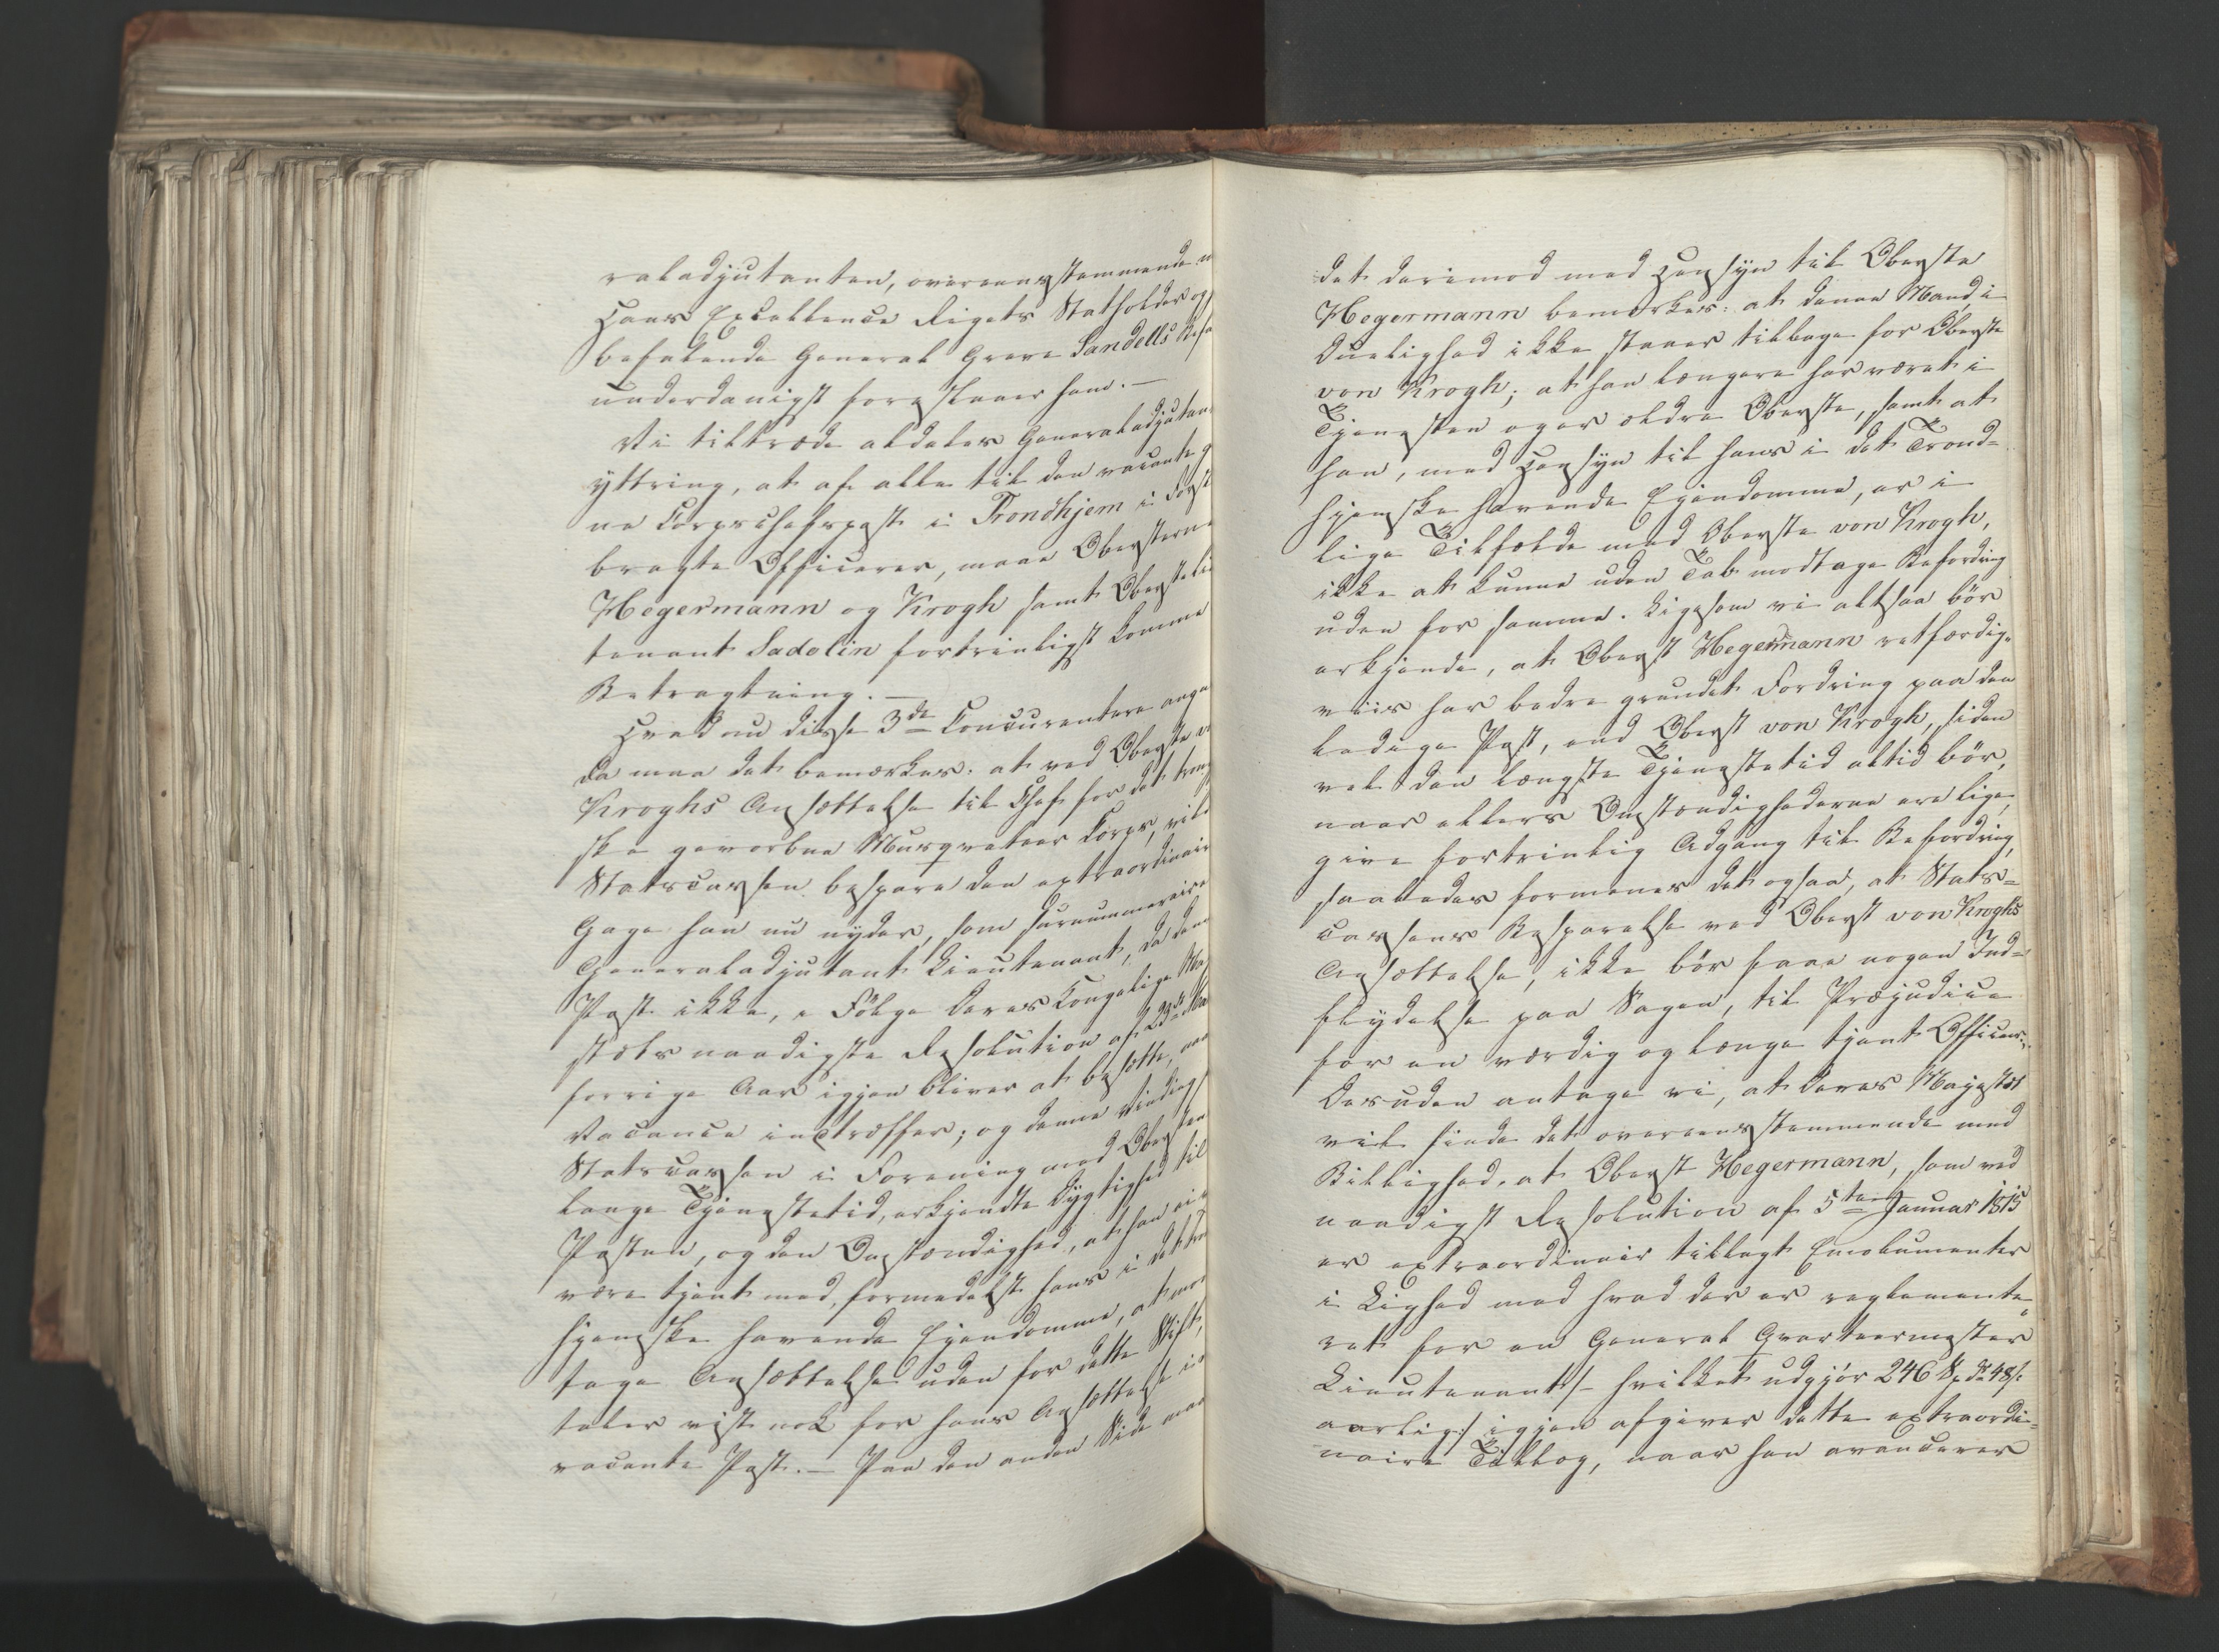 raladjutanten, overeensstemmende m
Hans Excellence Rigets Statholder og
befalende General Greve Sandells
underdanigst foreslaaer ham. —
Vi tiltræde aldeles Generaladjutan
yttring, at af alle til den vacante
ne Corpschefspost i Trondhjem i Forst
bragte Officerer, maae Obersterne
Hegermann og Krogh samt Oberstelie
tenant Sadolin fortrinligst komme
Betragtning. —
Hvad nu disse 3de Concurentere anga
da maa det bemærkes: at ved Oberste v
Kroghs Ansættelse til Chef for det tron
ske gevorbne Musqveteer Corps, vild
Statscassen bespare den extraordinair
Gage han nu nyder, som surnummeraire
Generaladjutant Lieutenant, da den
Post ikke, i Følge Deres Kongelige Ma
stæts naadigste Resolution af 23de
forrige Aar igjen bliver at besætte, naar
Vacance indtræffer; og denne Vinding
Statscassen i Forening med Obersten
lange Tjenestetid, erkjendte Dygtighed til
Posten, og den Omstændighed, at han ei
være tjent med, formedelst hans i det tron
hjemske havende Ejendomme, at mod
tage Ansættelse uden for dette Stift,
taler vist nok for hans Ansættelse i
vacante Post. — Paa den anden Side maa
det derimod med Hensyn til Oberste
Hegermann bemærkes: at denne Mand i
Duelighed ikke staaer tilbage for Oberste
von Krogh; at han længere har været i
Tjenesten og er ældre Oberste, samt at
han, med Hensyn til hans i det Trond-
hjemske havende Ejendomme, er i
lige Tilfælde med Oberste von Krogh,
ikke at kunne uden Tab modtage Befordring
uden for samme. Ligesom vi altsaa bør
erkjende, at Oberst Hegermann retfærdig-
viis har bedre grundet Fordring paa den
ledige Post, end Oberst von Krogh, siden
vel den længste Tjenestetid altid bør,
naar ellers Omstændighederne ere lige,
give fortrinlig Adgang til Befordring,
saaledes formenes det ogsaa, at Stats-
cassens Besparelse ved Oberst von Kroghs
Ansættelse, ikke bør faae nogen Ind-
flydelse paa Sagen, til Præjudice
for en værdig og længe tjent Officeer.
Desuden antage vi, at Deres Majestæt
vil finde det overeensstemmende med
Billighed, at Oberst Hegermann, som ved
naadigst Resolution af 5te Januar 1815
er extraordinair tillagt Emolumenter
i Lighed med hvad der er reglemente-
ret for en General Qvarteermester
Lieutenant /: hvilket udgjør 246 Spdr 48 s:
aarlig :/ igjen afgiver dette extraordi-
naire Tillæg, naar han avancerer